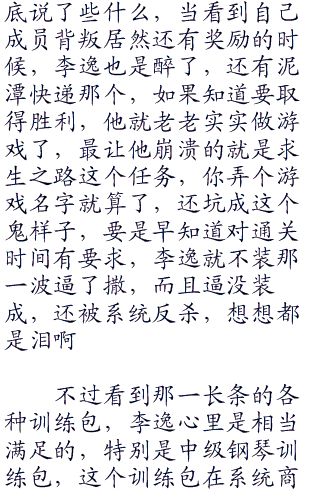 底说了些什么，当看到自己
成员背叛居然还有奖励的时
候，李逸也是醉了，还有泥
潭快递那个，如果知道要取
得胜利，他就老老实实做游
戏了，最让他崩溃的就是求
生之路这个任务，你弄个游
戏名字就算了，还坑成这个
鬼样子，要是早知道对通关
时间有要求，李逸就不装那
一波逼了撒，而且逼没装
成，还被系统反杀，想想都
是泪啊
不过看到那一长条的各
种训练包，李逸心里是相当
满足的，特别是中级钢琴训
练包，这个训练包在系统商